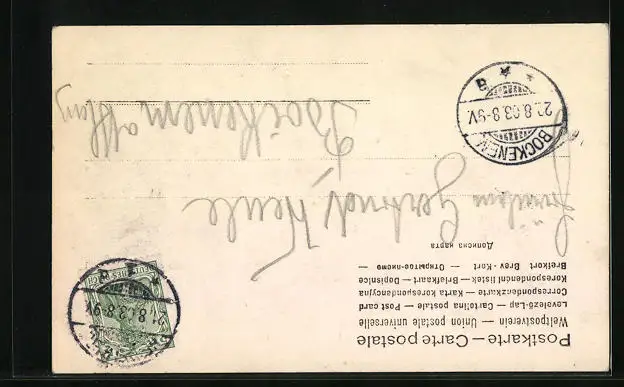 Postkarte — Carte postale
Weltpostverein — Union postale universelle
Levelező-Lap — Cartolina postale — Post card
Correspondenzkarte — Karta korespondencyjna
Korespondenční listek — Briefkaart — Dopisnice
Brefkort Brev-Kort — Открытое письмо —
Дописна карта
Fräulein Gertrud
Bockenem
BOCKENEM
8.03.8-9V
* * a
DEUTSCHES REICH
8.03.8-9V